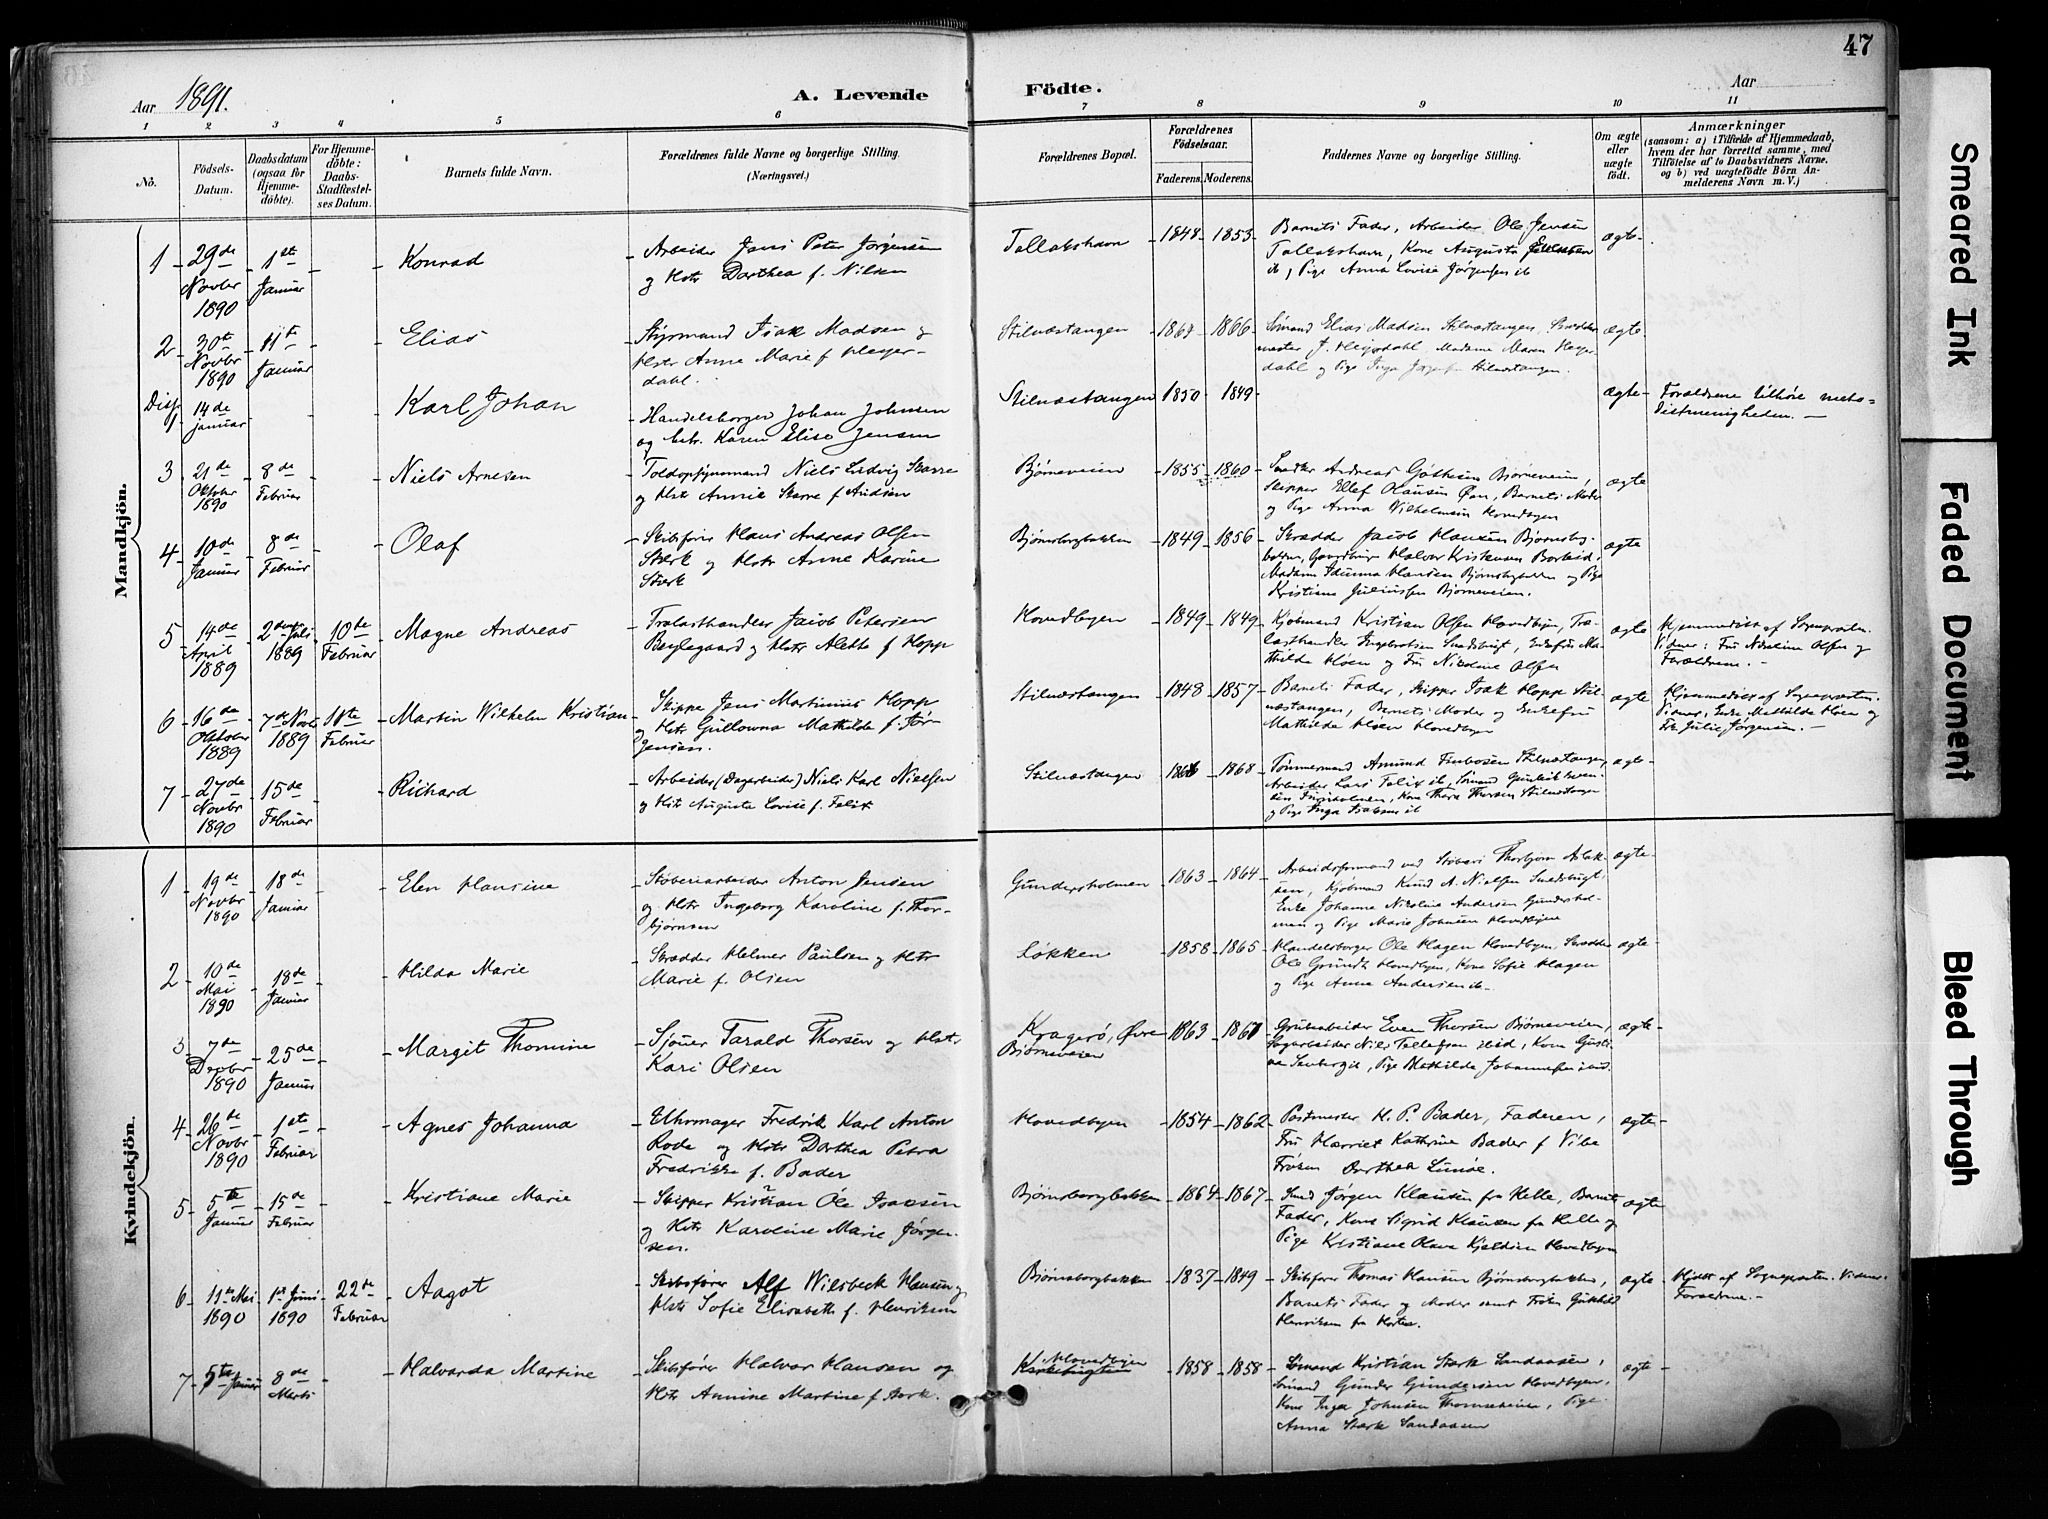 47
Aar 1891.
A. Levende Födte.
Aar
1 2 3 4 5 6 7 8 9 10 11
No.
Födsels-Datum.
Daabsdatum (ogsaa for Hjemmedöbte).
For Hjemmedöbte: Daabs-Stadfæstelses Datum.
Barnets fulde Navn.
Forældrenes fulde Navne og borgerlige Stilling.
(Næringsvei.)
Forældrenes Bopæl.
Forældrenes Födselsaar.
Faderens. Moderens.
Faddernes Navne og borgerlige Stilling.
Om ægte eller uægte födt.
Anmærkninger
(saasom: a) i Tilfælde af Hjemmedaab, hvem der har forrettet samme, med Tilföielse af to Daabsvidners Navne, og b) ved uægtefödte Börn Anmelderens Navn m. V.)
Mandkjön.
1 29de Novbr 1890 1ste Januar Konrad
Arbeider Jens Peter Jørgensen
og Hstr Dorthea f. Nilsen
Tallakshavn 1848 1853
Barnets Fader, Arbeider Ole Jensen
Tallakshavn, Kone Augusta
ib, Pige Anna Lovise Jørgensen ib
ægte
2 30te Novbr 1890 11te Januar Elias
Styrmand Isak Madsen og
Hstr Anne Marie f Heyerdahl.
Stilnæstangen 1866
Sømand Elias Madsen Stilnæstangen, Skræddermester J. Heyerdahl Madame Maren Heyerdahl og Pige Stilnæstangen.
ægte
Disp 1 14de Januar Karl Johan
Handelsborger Johan Johnsen
og hstr. Karen Elise Jensen
Stilnæstangen 1850 1849 ægte
Forældrene tilhöre methodistmenigheden.
3 21de Oktober 1890 8de Februar Niels Arnesen
Toldopsynsmand Niels Ludvig Skarre
og Hstr Annie Skarre f Andsen
Bjørneveien 1855 1860
Andreas Bjørneveien,
Skipper Ellef Olausen Øen, Barnets Moder
og Pige Anna Vilhelmsen Hovedbyen
ægte
4 10de Januar 8de Februar Olaf
Skibsfører Hans Andreas Olsen
Stærk og Hstr Anne Karine
Stærk
Bjørnsborgbakken 1849 1856
Skrædder Jacob Hansen Bjørnsbgbakken, Halvor Kristensen
Madam Hansen Bjørnsbgbakken og Pige
Kristiane Juliussen Bjørneveien.
ægte
5 14de April 1889 2den Juli 1889 10de Februar Magne Andreas
Trælasthandler Jacob Petersen
Bøylegaard og Hstr Alette f Hopp
Hovedbyen 1849 1849
Kjøbmand Kristian Olsen Hovedbyen, Trælasthandler Ingebretsen Smedsbugt, Enkefru Mathilde Høen og Fru Nikoline Olsen
ægte
Hjemmedöbt af Sognepræsten.
Vidner: Fru Nikoline Olsen og
Forældrene.
6 16de Oktober 1889 7de Novbr 1889 11te Februar Martin Wilhelm Kristian
Skipper Jens Martinius Hopp
og Hstr Gullowna Mathilde f. Jørgensen.
Stilnæstangen 1848 1857
Barnets Fader, Skipper Isak Hopp Stilnæstangen, Barnets Moder og Enkefru
Mathilde Høen Hovedbyen
ægte
Hjemmedöbt af Sognepræsten.
Vidner, Enke Mathilde Høen og
Frk Julie Jørgensen.
7 27de Novbr 1890 15de Februar Richard
Arbeider (Dagarbeider) Niels Karl Nielsen
og Hstr Augusta Lovise f. Felix
Stilnæstangen 1868
Tømmermand Amund Stilnæstangen,
Arbeider Lars Felix ib, Sømand
Kone Thora Thorsen Stilnæstangen
og Pige Inga Isaksen ib
ægte
Kvindekjön.
1 19de Novbr 1890 18de Januar Elen Hansine
Støberiarbeider Anton Jensen
og Hstr Ingeborg Karoline f. Thorbjørnsen
Gundersholmen 1863 1864
Arbeidsformand ved Støberi Thorbjørn Aslaksen, Kjøbmand Knud A. Nielsen Smedsbugt,
Enke Johanne Nikoline Andersen Gundersholmen og Pige Marie Johnsen Hovedbyen
ægte
2 10de Mai 1890 18de Januar Hilda Marie
Skrædder Helmer Paulsen og Hstr
Marie f. Olsen
Løkken 1858 1865
Handelsborger Ole Hagen Hovedbyen, Skrædder
Ole Grundt Hovedbyen, Kone Sofie Hagen
og Pige Anna Andersen ib
ægte
3 7de Decbr 1890 25de Januar Margit Thomine
Sjouer Tarald Thorsen og Hstr
Kari Olsen
Kragerø, Øvre
Bjørneveien 1863
Grubearbeider Even Thorsen Bjørneveien,
Sagarbeider Niels Tellefsen ibid, Kone
Pige Mathilde Johannesen ibid.
ægte
4 26de Novbr 1890 1ste Februar Agnes Johanna
Uhrmager Fredrik Karl Anton
Rode og Hstr Dorthea Petra
Fredrikke f. Bader
Hovedbyen 1854 1862
Postmester H. P. Bader, Faderen,
Fru Harriet Kathrine Bader f Vibe
Frøken Dorthea Lunøe.
ægte
5 5te Januar 15de Februar Kristiane Marie
Skipper Kristian Ole Isaksen
og Hstr Karoline Marie Jørgensen.
Bjørnsborgbakken 1864 1867
Jørgen Klausen fra Helle, Barnets
Fader, Kone Sigrid Klausen fra Helle og
Pige Kristiane Olava Kjeldsen Hovedbyen
ægte
6 11te Mai 1890 1ste Juni 1890 22de Februar Aagot
Skibsfører Alf Wilsbeck Hansen og
Hstr Sofie Elisabeth f. Henriksen
Bjørnsborgbakken 1837 1849
Skibsfører Thomas Hansen Bjørnsborgbakken,
Barnets Fader og Moder samt Frøken
Henriksen fra Horten.
ægte
Hjdöbt af Sognepræsten. Vidner:
Forældrene.
7 5te Januar 8de Marts Halvarda Martine
Skibsfører Halvor Hansen og
Hstr Annine Martine f Stærk.
Hovedbyen 1858 1858
Sømand Kristian Stærk Sandaasen,
Sømand Gunder Gundersen Hovedbyen,
Kone Inga Johnsen Thomesheien, Pige
Anna Stærk Sandaasen
ægte
Smeared Ink
Faded Document
Bleed Through